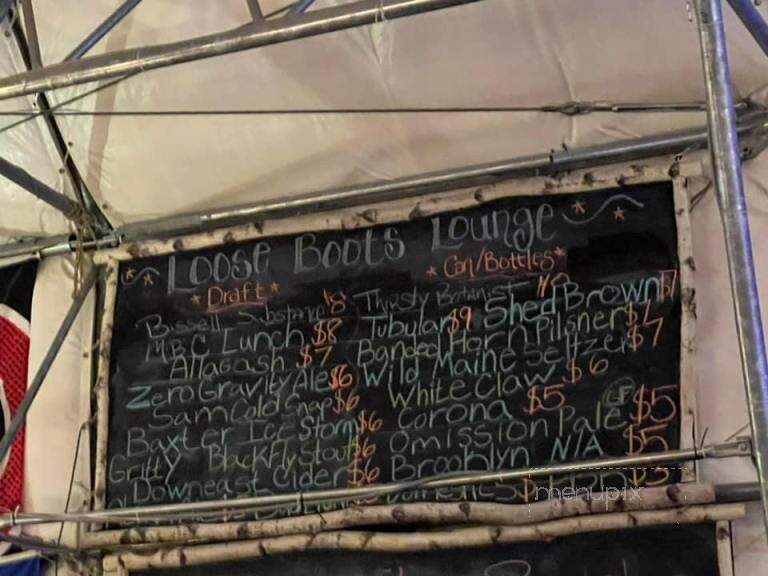 Loose Boots Lounge
Draft
Bissell Substance $8
MBC Lunch $8
Allagash $7
Zero Gravity Ale $6
Sam Cold Snap $6
Baxter Ice Storm $6
Gritty Black Fly Stout $6
Downeast Cider $6
Can/Bottles
Thirsty Botanist
Tubular $9 Shed Brown $7
Banded Horn Pilsner $7
Wild Maine Seltzer $7
White Claw $6
Corona $5
Omission Pale GF $5
Brooklyn N/A $5
menupix